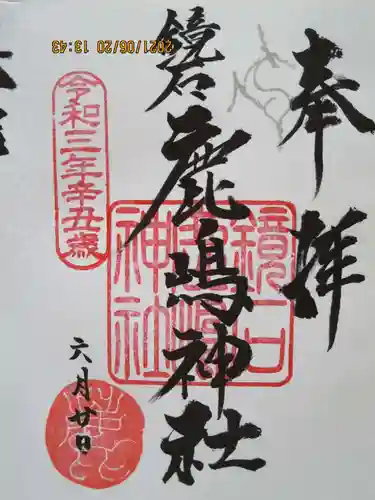 奉拝
鏡石
鹿嶋神社
鏡石
鹿嶋
神社
令和三年辛丑歳
六月廿日
2021/06/20 13:43